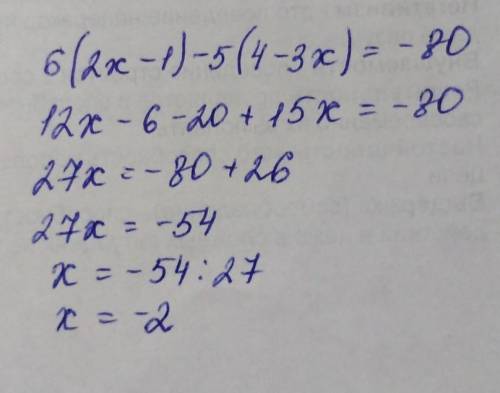 6(2x-1)-5(4-3x)= -80
12x-6-20+15x=-80
27x=-80+26
27x=-54
x=-54:27
x=-2